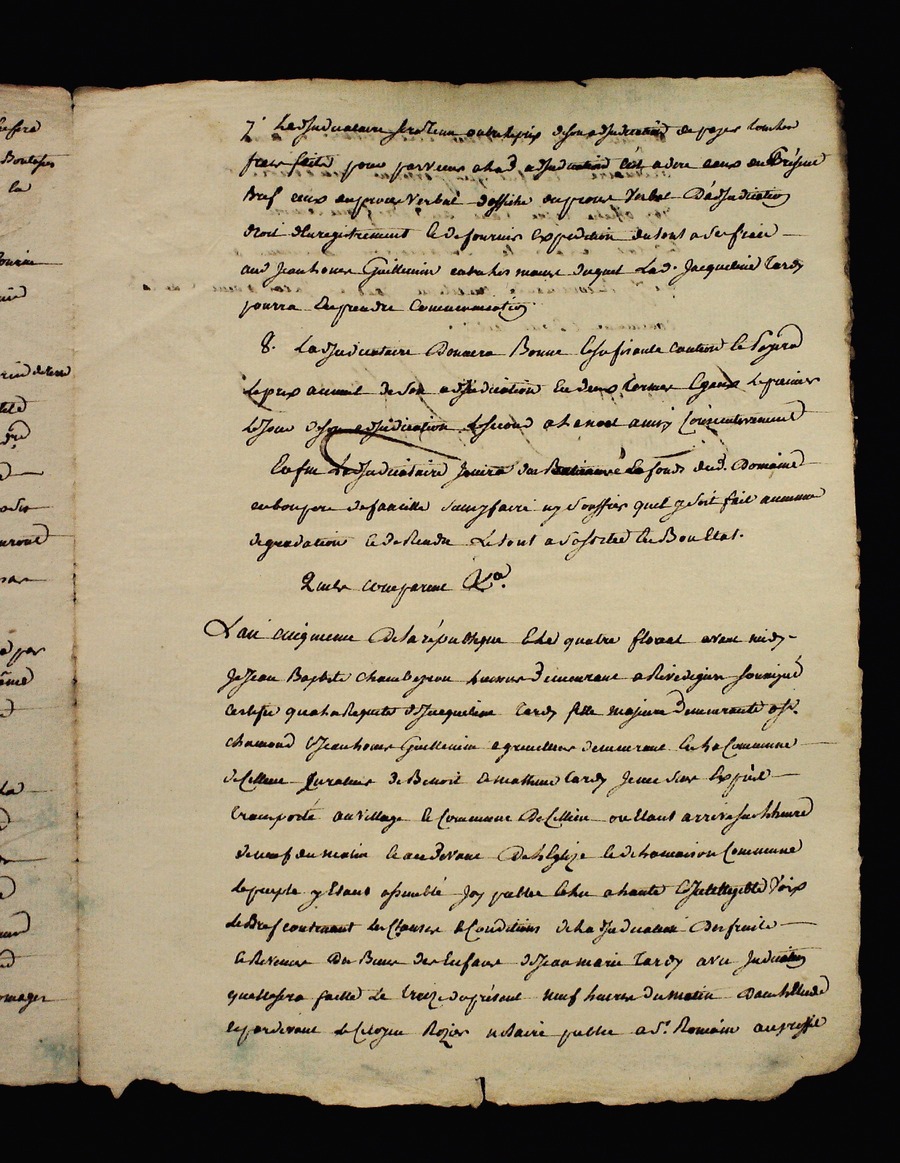 7° Ladjudicataire sera tenu outre le prix de son adjudication de payer tous les
frais faits pour parvenir a lad adjudication c'est a dire ceux du présent
Bref ceux du proces verbal d'affiche du proces verbal D'adjudication
droit d'enregistrement & de fournir expedition du tout a ses frais
aud Jean Guillemin entre les mains duquel Lad. Jacqueline Tardy
pourra En prendre Communication
8. Ladjudicataire Donnera Bonne & suffisante caution & payera
Le prix annuel de son adjudication En deux termes Egaux Le premier
Le jour de son adjudication Le second & ainsi Consecutivement
Enfin Ladjudicataire jouira des Batiments & fonds dud. Domaine
en bon pere de famille sans y faire ny souffrir quil y soit fait aucune
degradation & de Rendre Le tout a Sa sortie En Bon Etat.
Lan cinquieme De la république & le quatre floreal avant midy
Je Jean Baptiste Chambeyron huissier Demeurant a Rivedegier soussigné
Certifie qua la Requete de Jacqueline Tardy fille majeure Demeurante a St.
chamond & Jean Guillemin agriculteur demeurant En la Commune
de Cellieu Curateur de Benoit & Mathieu Tardy je me suis Exprès
transporté au village & Commune De Cellieu ou Etant arrivé sur Lheure
de neuf du matin & au devant De LEglize & de la maison Commune
Le peuple y Etant assemblé Jay publié & lu a haute & Intelligible Voix
Le Bref contenant les Clauses & Conditions de La djudication Des fruits
& Revenus Des Biens des Enfans de Jean marie Tardy avec Indication
quelle sera faitte Le treize du présent neuf heures Du matin Dans Létude
& pardevant Le Citoyen Rozier notaire public a St. Romain